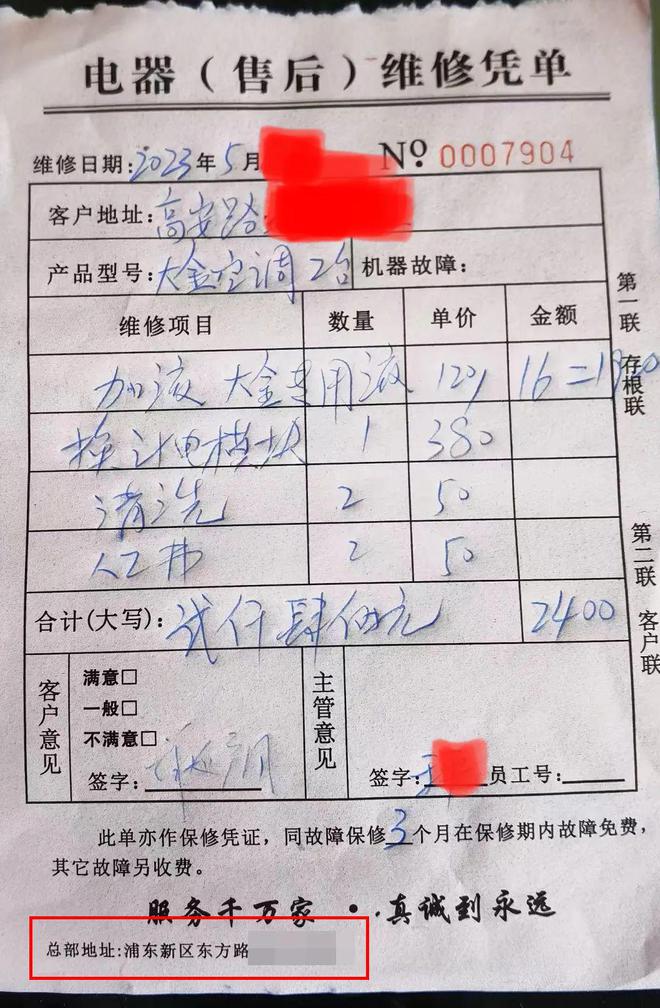 电器（售后）维修凭单
维修日期:2023年5月 No 0007904
客户地址:高安路
产品型号:大金空调2台 机器故障:
维修项目 数量 单价 金额
加液 大金专用液 120/ 16=1920
换计电模块 1 380
清洗 2 50
人工费 2 50
合计(大写): 贰仟肆佰元 2400
客户意见
满意□
一般□
不满意□
签字:
主管意见
签字: 员工号:
第一联 存根联
第二联 客户联
此单亦作保修凭证，同故障保修3个月在保修期内故障免费，
其它故障另收费。
服务千万家 · ·真诚到永远
总部地址:浦东新区东方路